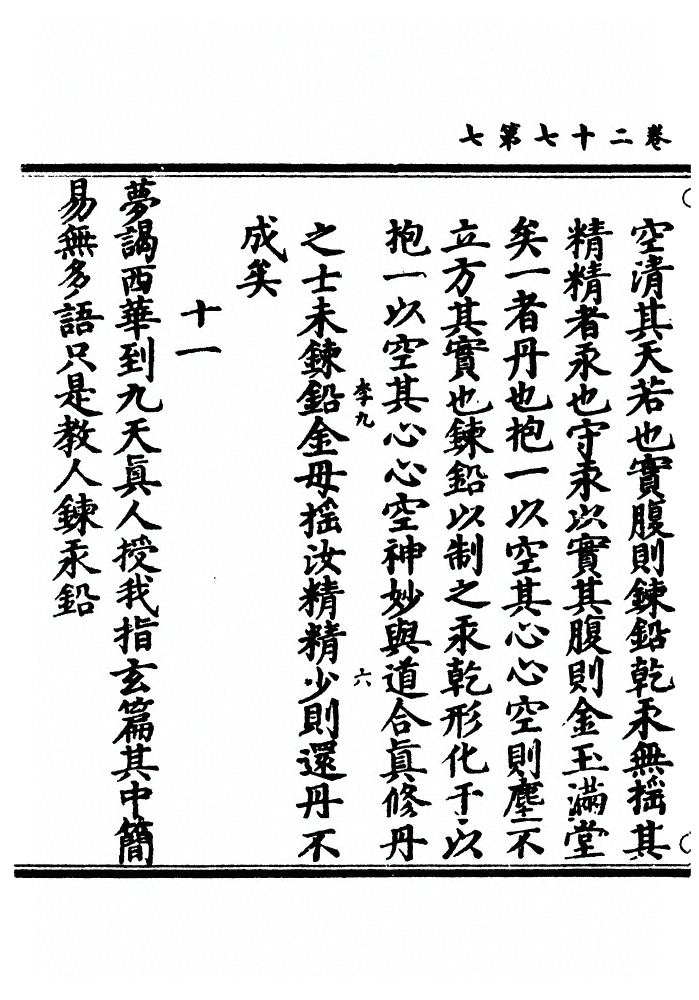 卷二十七第七
空清其天若也實腹則鍊鉛乾汞無揺其
精精者汞也守汞以實其腹則金玉滿堂
矣一者丹也抱一以空其心心空則塵不
立方其實也鍊鉛以制之汞乾形化于以
抱一以空其心心空神妙與道合眞修丹
李九
六
之士未鍊鉛金毋揺汝精精少則還丹不
成矣
十一
夢謁西華到九天眞人授我指玄篇其中簡
易無多語只是教人鍊汞鉛